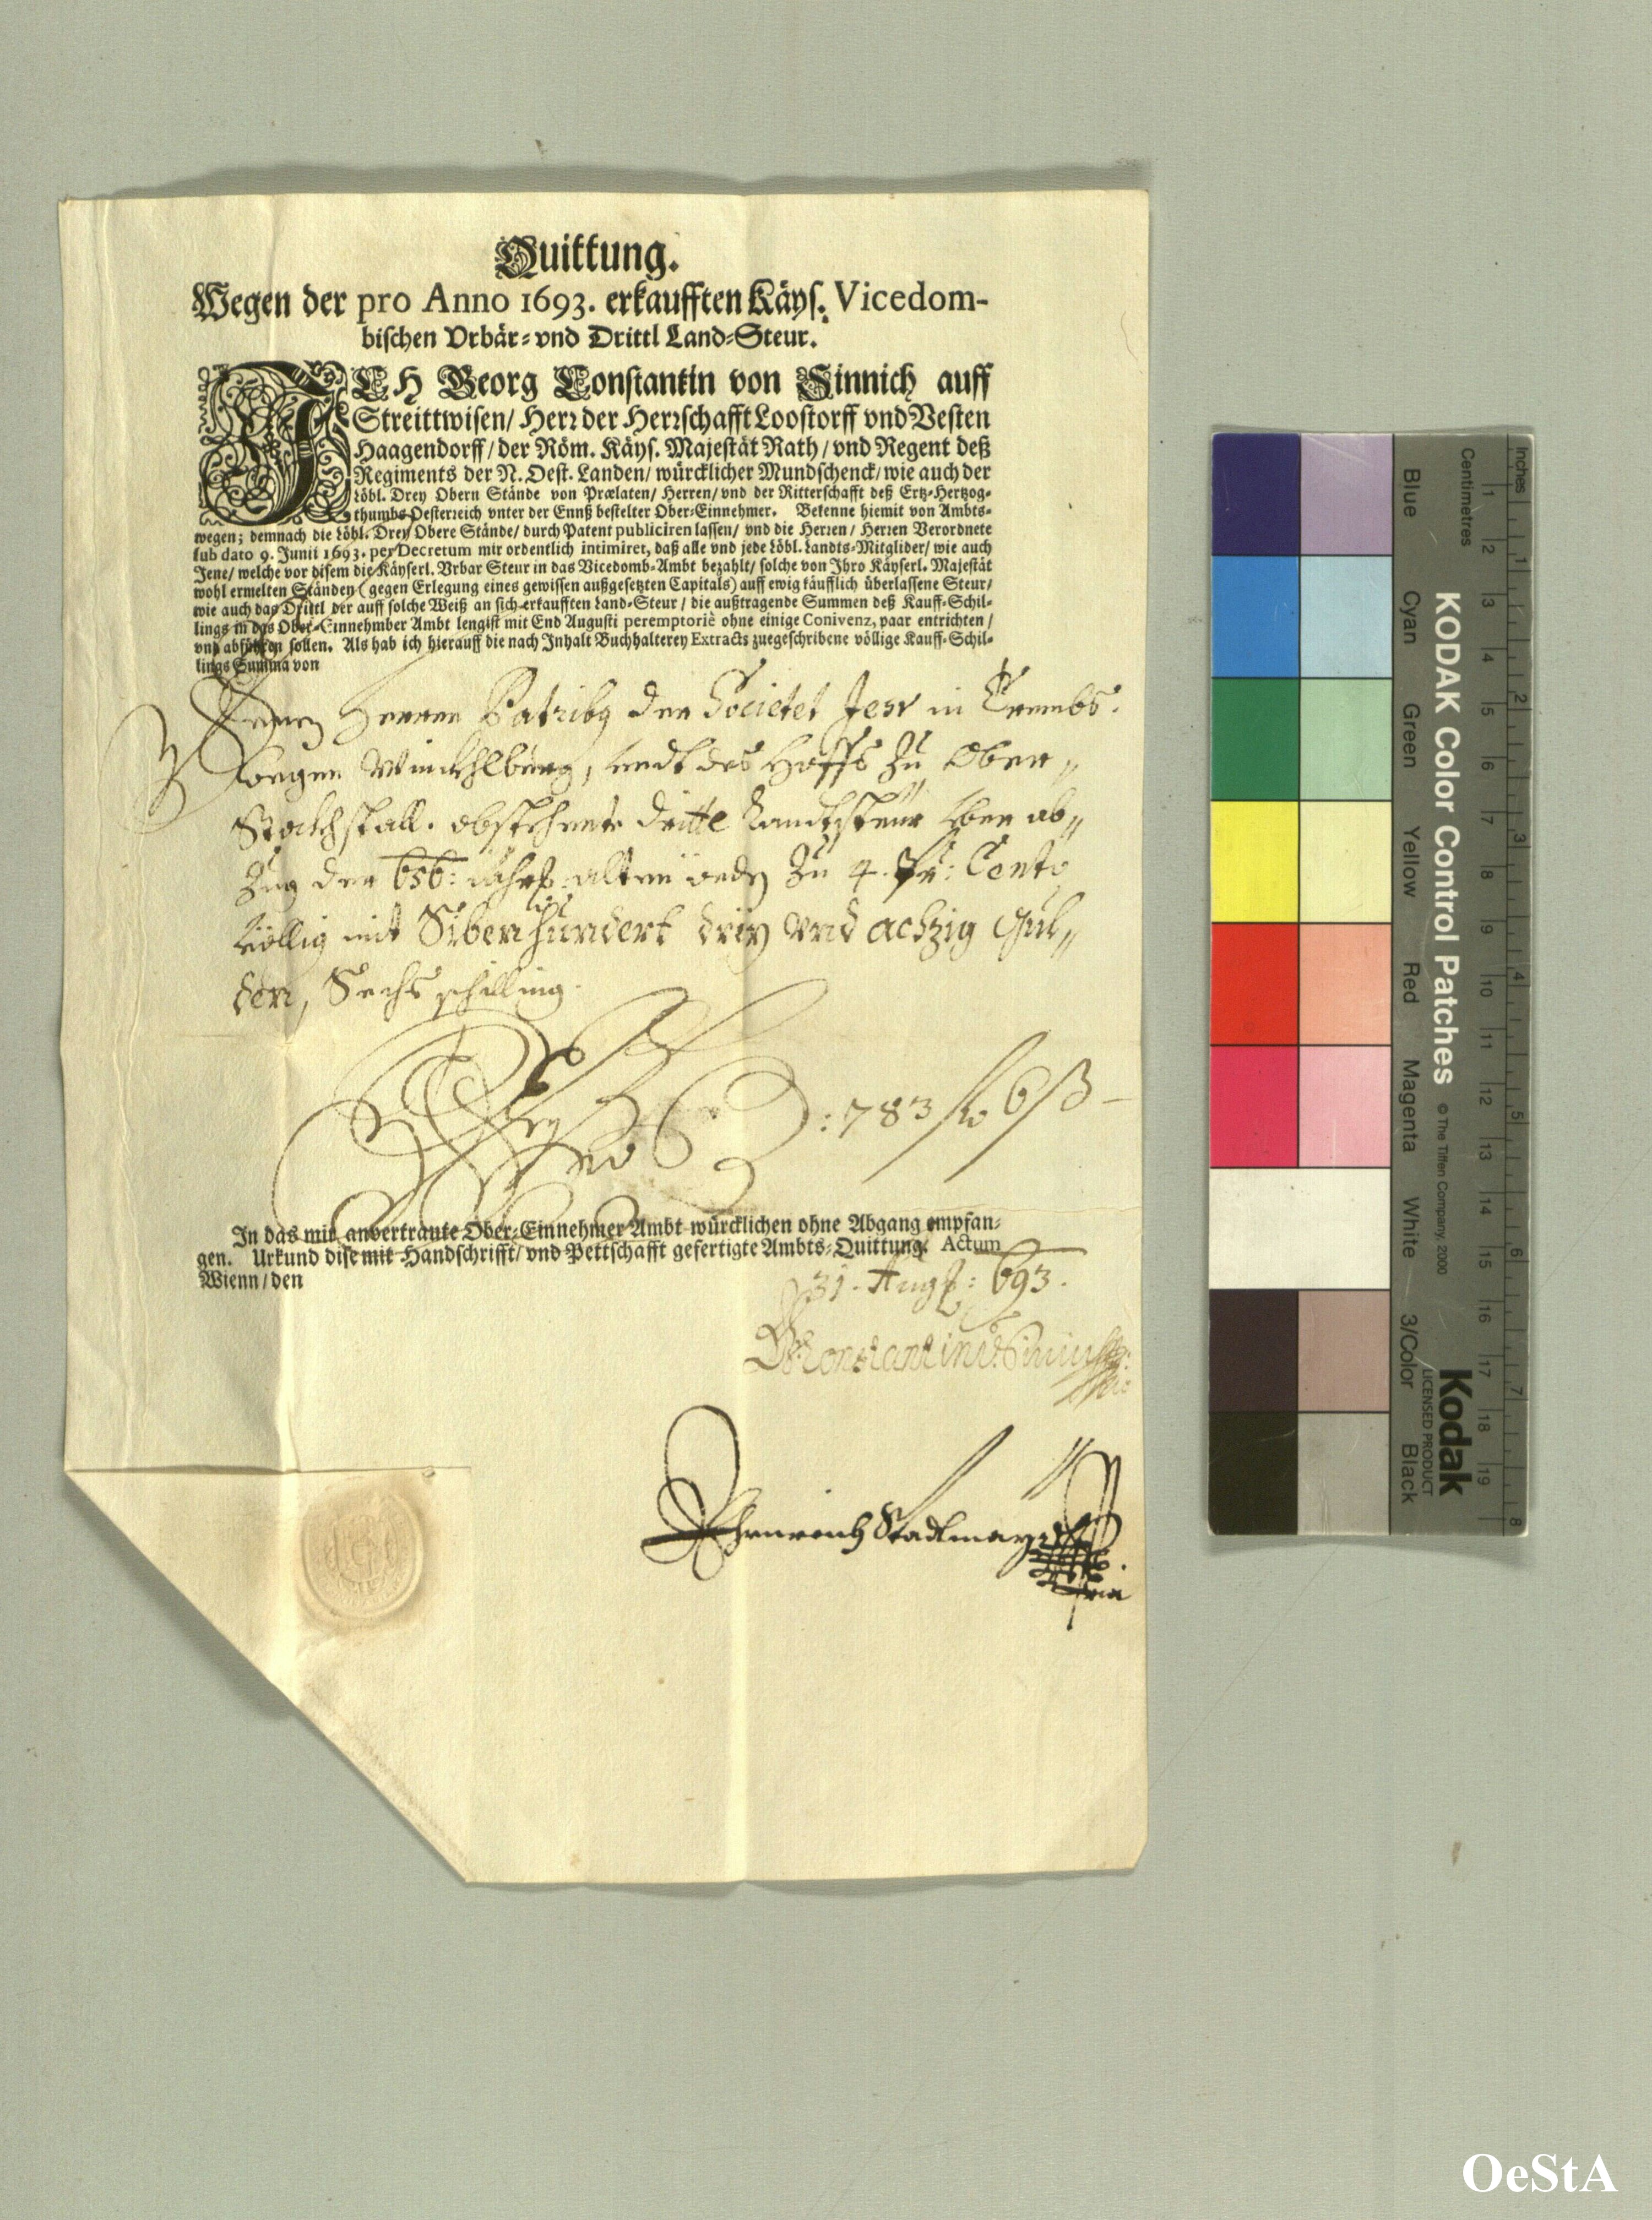 Quittung.
Wegen der pro Anno 1693. erkaufften Käys. Vicedom-
bischen Vrbär- vnd Drittl Land-Steur.
ICH Georg Constantin von Sinnich auff
Streittwisen/ Herr der Herrschafft Loostorff vnd Vesten
Haagendorff/ der Röm. Käys. Majestät Rath/ vnd Regent deß
Regiments der N. Oest. Landen/ würcklicher Mundschenck/ wie auch der
Löbl. Drey Obern Stände von Prælaten/ Herren/ vnd der Ritterschafft deß Ertz-Hertzog-
thumbs Oesterreich vnter der Ennß bestelter Ober-Einnehmer. Bekenne hiemit von Ambts-
wegen; demnach die Löbl. Drey Obere Stände/ durch Patent publiciren lassen/ vnd die Herren/ Herren Verordnete
sub dato 9. Junii 1693. per Decretum mir ordentlich intimiret, daß alle vnd jede Löbl. Landts-Mitglider/ wie auch
Jene/ welche vor disem die Käyserl. Vrbar Steur in das Vicedomb-Ambt bezahlt/ solche von Ihro Käyserl. Majestät
wohl ermelten Ständen (gegen Erlegung eines gewissen außgesetzten Capitals) auff ewig käufflich überlassene Steur/
wie auch das Drittl der auff solche Weiß an sich erkaufften Land-Steur/ die außtragende Summen deß Kauff-Schil-
lings in das Ober-Einnehmber Ambt lengist mit End Augusti peremptoriè ohne einige Conivenz, paar entrichten/
vnd abführen sollen. Als hab ich hierauff die nach Inhalt Buchhalterey Extracts zuegeschribene völlige Kauff-Schil-
lings Summa von
Herren Patribus der Societet Jesv in Crembs.
wegen Winckhlberg, vndt des Hoffs Zu Ober-
Stockhstall. dritte Landtsteur yber ab-
Zug der 656: Zu 4. Pr: Cento
völlig mit Sibenhundert drey vnd achzig Gul-
den, Sechs schilling.
: 783 fl 6 ß –
In das mir anvertraute Ober-Einnehmer Ambt würcklichen ohne Abgang empfan-
gen. Urkund dise mit Handschrifft/ vnd Pettschafft gefertigte Ambts-Quittung. Actum
Wienn/ den
31. Aug: 693.
Constantin v. Sinnich
Stadlmayr
Inches
Centimetres
KODAK Color Control Patches
© The Tiffen Company, 2000
Kodak
LICENSED PRODUCT
Blue
Cyan
Green
Yellow
Red
Magenta
White
3/Color
Black
1 2 3 4 5 6 7 8 9 10 11 12 13 14 15 16 17 18 19
1 2 3 4 5 6 7 8
OeStA